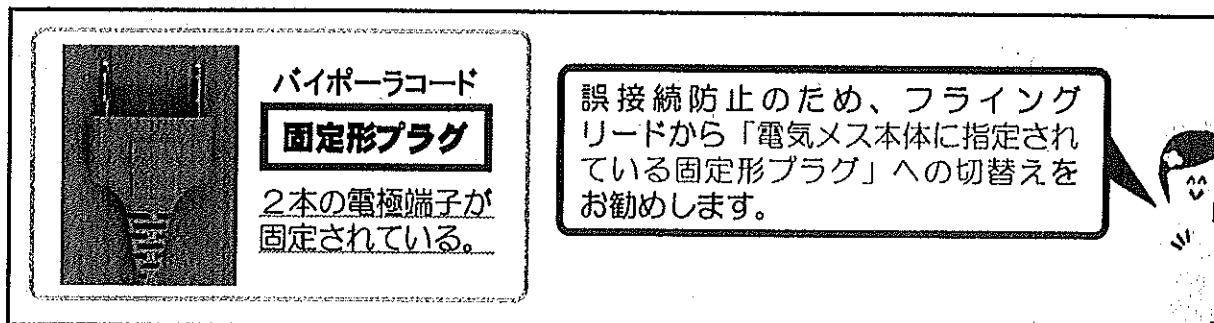 バイポーラコード
固定形プラグ
2本の電極端子が
固定されている。
誤接続防止のため、フライング
リードから「電気メス本体に指定され
ている固定形プラグ」への切替えを
お勧めします。